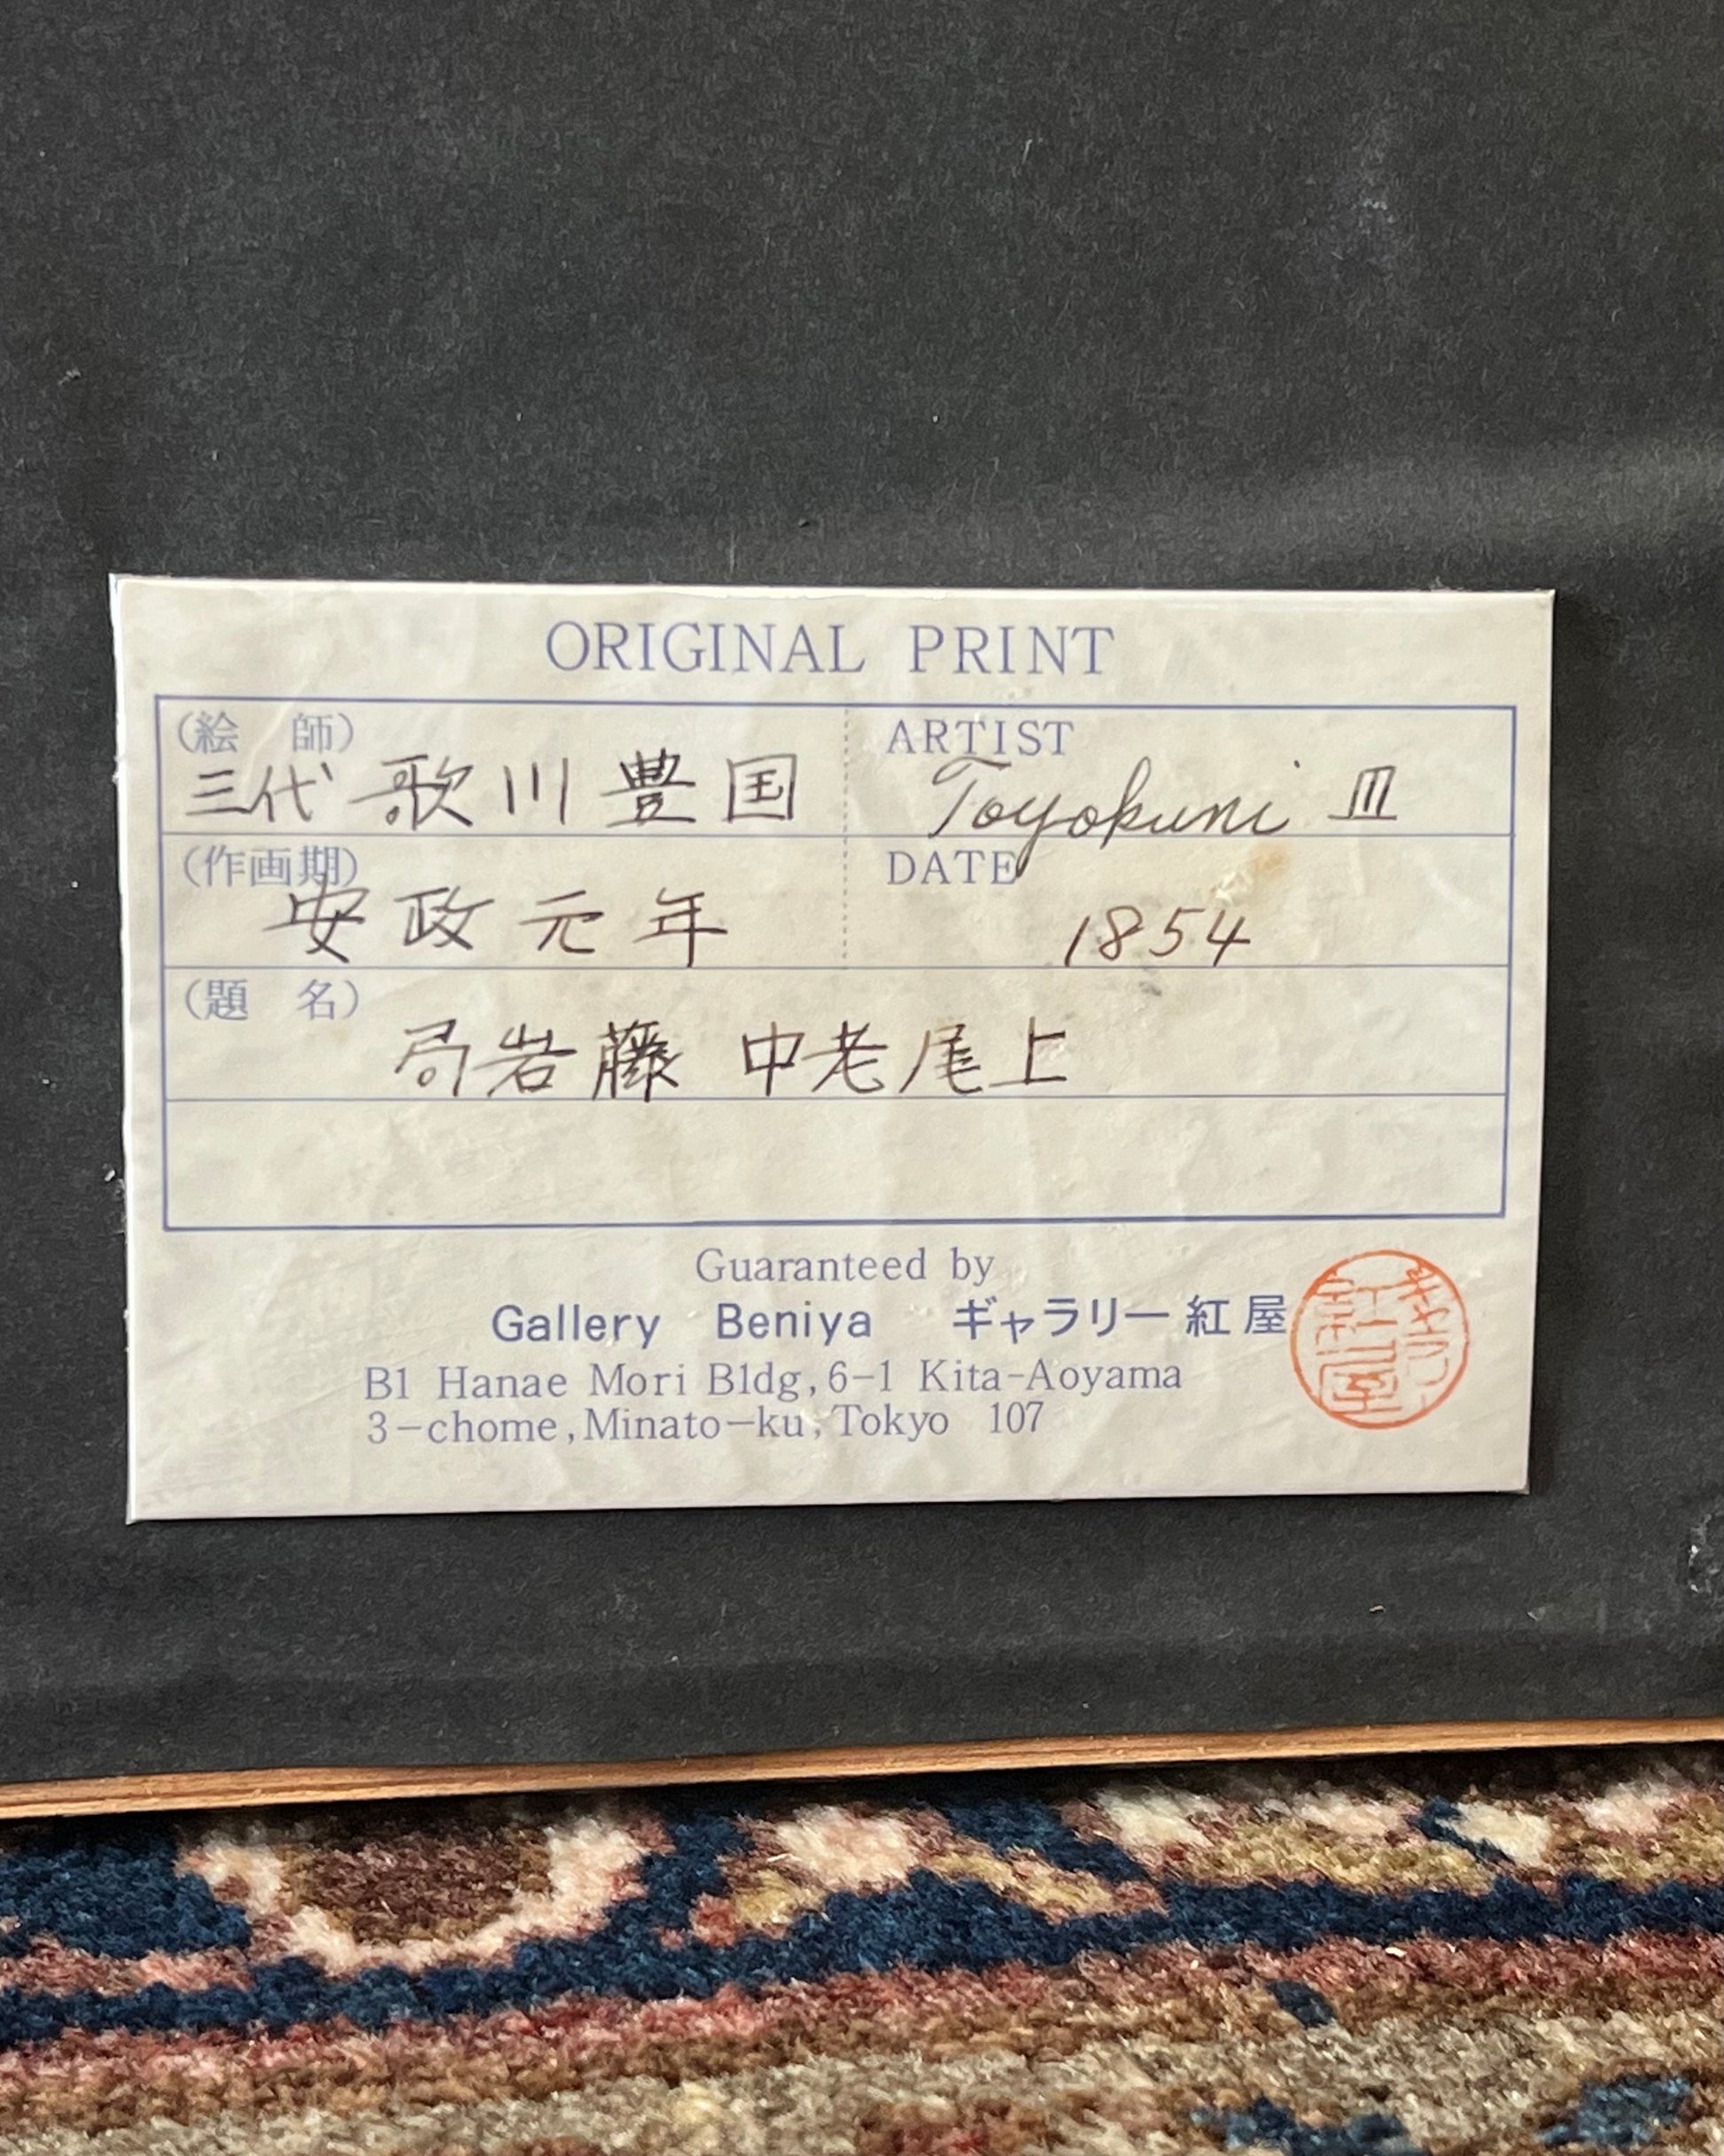 ORIGINAL PRINT
(絵 師) ARTIST
三代 歌川豊国 Toyokuni III
(作画期) DATE
安政元年 1854
(題 名)
局岩藤 中老尾上
Guaranteed by
Gallery Beniya ギャラリー紅屋
B1 Hanae Mori Bldg,6-1 Kita-Aoyama
3-chome,Minato-ku,Tokyo 107
ギャラリー
紅屋